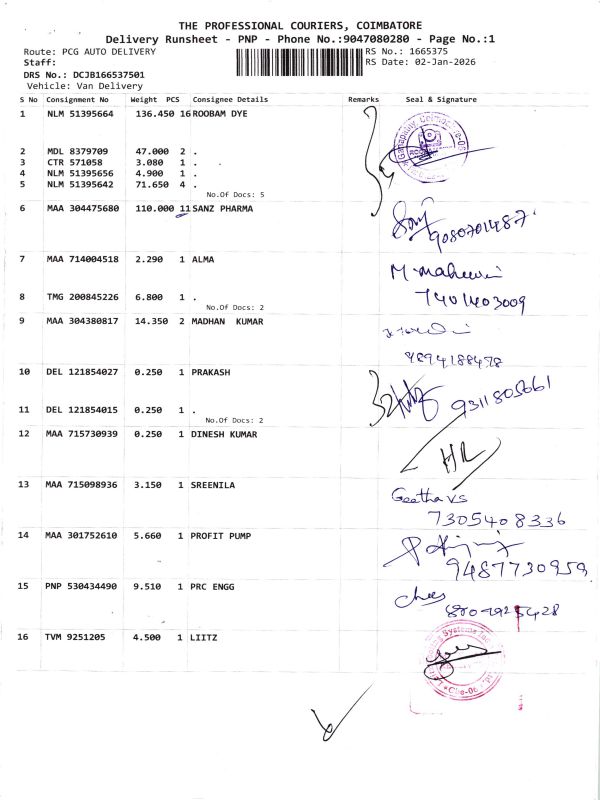 THE PROFESSIONAL COURIERS, COIMBATORE
Delivery Runsheet - PNP - Phone No.:9047080280 - Page No.:1
Route: PCG AUTO DELIVERY RS No.: 1665375
Staff: RS Date: 02-Jan-2026
DRS No.: DCJB166537501
Vehicle: Van Delivery
S No Consignment No Weight PCS Consignee Details Remarks Seal & Signature
1 NLM 51395664 136.450 16 ROOBAM DYE
2 MDL 8379709 47.000 2 .
3 CTR 571058 3.080 1 .
4 NLM 51395656 4.900 1 .
5 NLM 51395642 71.650 4 .
No.Of Docs: 5
6 MAA 304475680 110.000 11 SANZ PHARMA
9080701487
7 MAA 714004518 2.290 1 ALMA
8 TMG 200845226 6.800 1 . 7401403009
No.Of Docs: 2
9 MAA 304380817 14.350 2 MADHAN KUMAR
9894188478
10 DEL 121854027 0.250 1 PRAKASH
9311805661
11 DEL 121854015 0.250 1 .
No.Of Docs: 2
12 MAA 715730939 0.250 1 DINESH KUMAR
13 MAA 715098936 3.150 1 SREENILA
Geetha VS
7305408336
14 MAA 301752610 5.660 1 PROFIT PUMP
9487730959
15 PNP 530434490 9.510 1 PRC ENGG
16 TVM 9251205 4.500 1 LIITZ